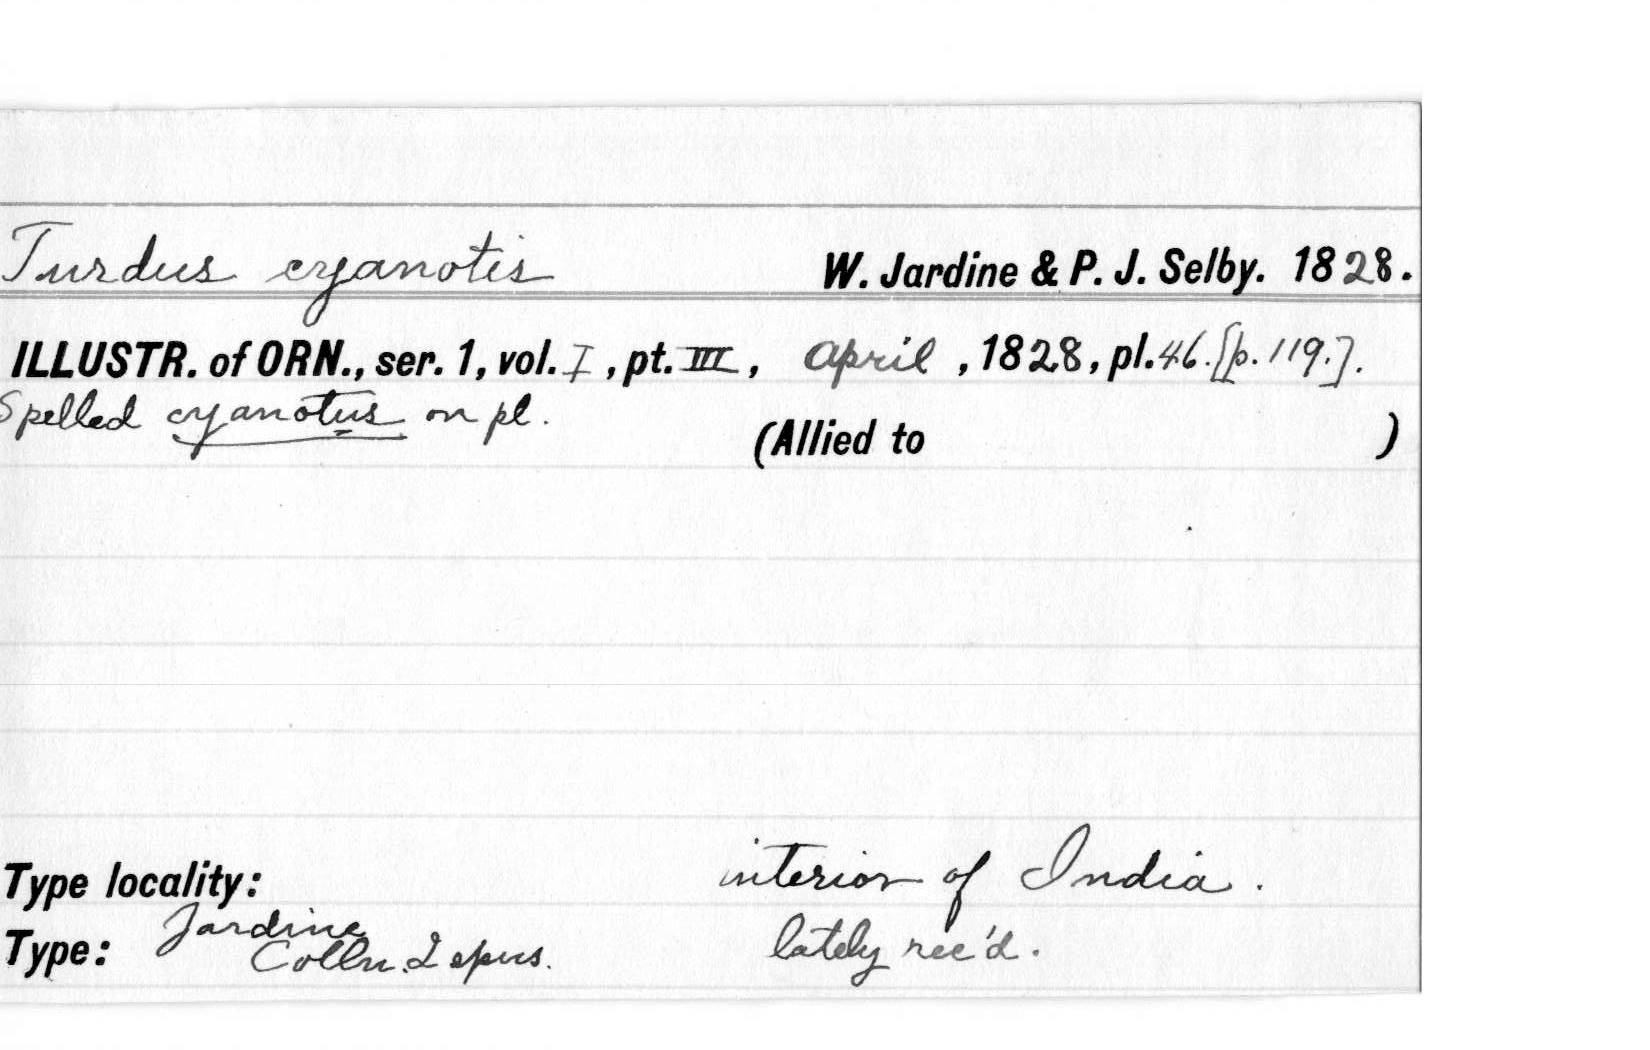 Turdus cyanotis W. Jardine & P. J. Selby. 1828.
ILLUSTR. of ORN., ser. 1, vol. I, pt. III, April, 1828, pl. 46. [p. 119.].
Spelled cyanotus on pl.
(Allied to )
Type locality: interior of India.
Type: Jardine Colln. 2 spus. lately rec'd.